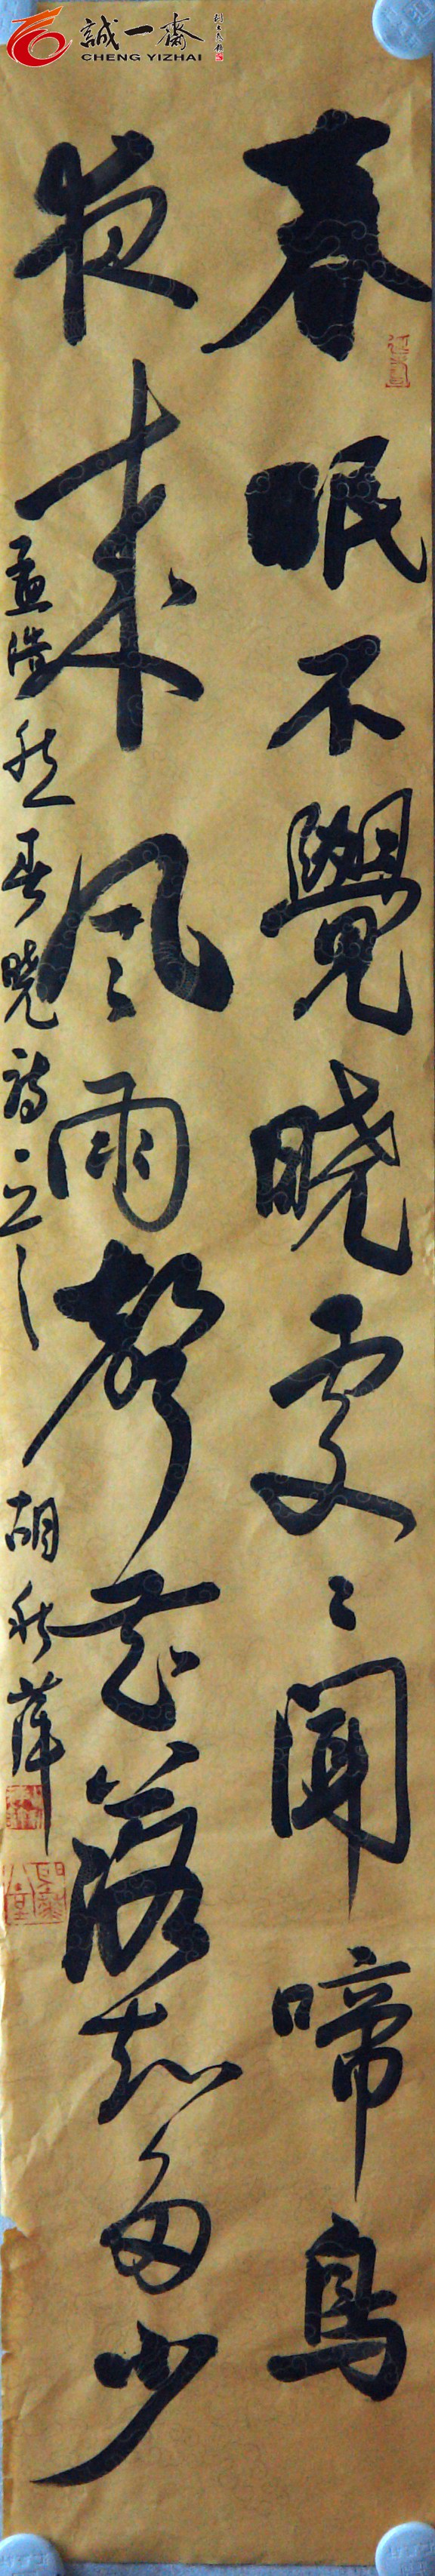 誠一齋
CHENG YIZHAI
春眠不覺曉處〻聞啼鳥
夜来風雨聲花落知多少
孟浩然春曉詩一首 胡秋萍